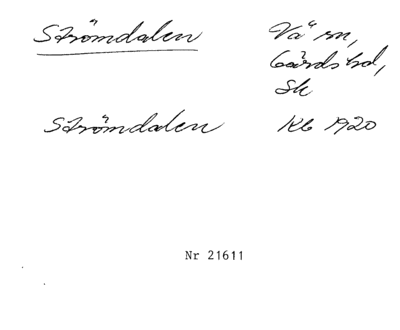 Strömdalen Vä sn,
Gärds hd,
Sk
Strömdalen Kb 1920
Nr 21611